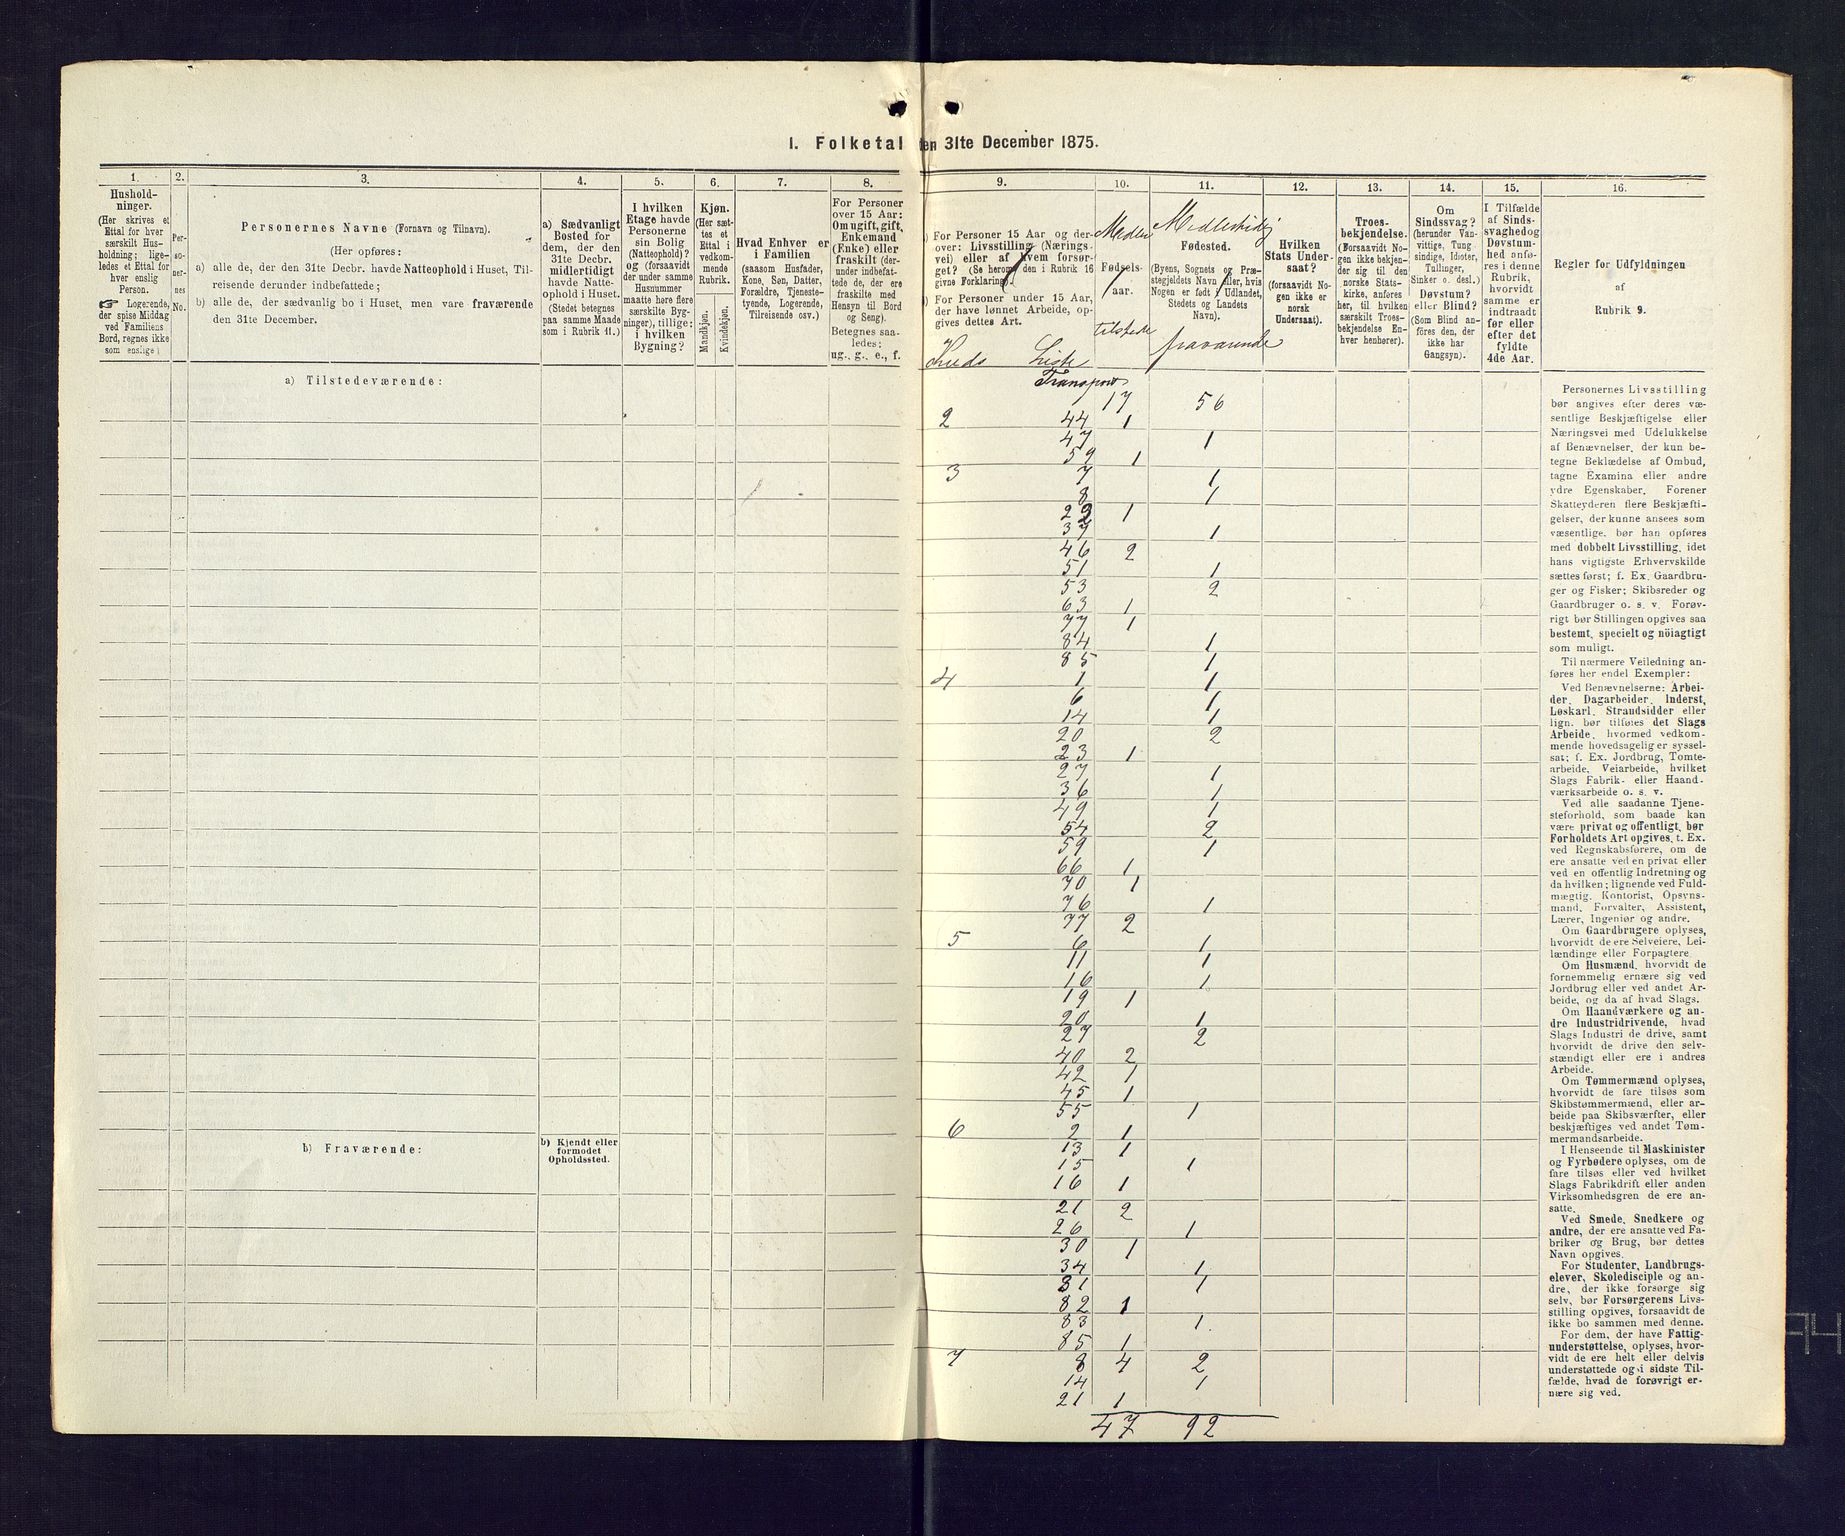 1. Folketal den 31te December 1875.
1.
Hushold-
ninger.
(Her skrives et
Ettal for hver
særskilt Hus-
holdning; lige-
ledes et Ettal for
hver enslig
Person.
☞ Logerende,
der spise Middag
ved Familiens
Bord, regnes ikke
som enslige)
2.
Per-
so-
ner-
nes
No.
3.
Personernes Navne (Fornavn og Tilnavn).
(Her opføres:
a) alle de, der den 31te Decbr. havde Natteophold i Huset, Til-
reisende derunder indbefattede;
b) alle de, der sædvanlig bo i Huset, men vare fraværende
den 31te December.
4.
a) Sædvanligt
Bosted for
dem, der den
31te Decbr.
midlertidigt
havde Natte-
ophold i Huset.
(Stedet betegnes
paa samme Maade
som i Rubrik 11.)
5.
I hvilken
Etage havde
Personerne
sin Bolig
(Natteophold)?
og (forsaavidt
der under samme
Husnummer
maatte høre flere
særskilte Byg-
ninger), tillige:
i hvilken
Bygning?
6.
Kjøn.
(Her sæt-
tes et
Ettal i
vedkom-
mende
Rubrik.
Mandkjøn.
Kvindekjøn.
7.
Hvad Enhver er
i Familien
(saasom Husfader,
Kone, Søn, Datter,
Forældre, Tjeneste-
tyende, Logerende,
Tilreisende osv.)
8.
For Personer
over 15 Aar:
Om ugift, gift,
Enkemand
(Enke) eller
fraskilt (der-
under indbefat-
tede de, der ere
fraskilte med
Hensyn til Bord
og Seng).
Betegnes saa-
ledes:
ug., g., e., f.
9.
a) For Personer 15 Aar og der-
over: Livsstilling (Nærings-
vei) eller af hvem forsør-
get? (Se herom den i Rubrik 16
givne Forklaring).
b) For Personer under 15 Aar,
der have lønnet Arbeide, op-
gives dettes Art.
Kreds Liste
10.
Midler
Fødsels-
aar.
tilstede
11.
Midlertidig
Fødested.
(Byens, Sognets og Præ-
stegjeldets Navn eller, hvis
Nogen er født i Udlandet,
Stedets og Landets
Navn).
fraværende
12.
Hvilken
Stats Under-
saat?
(forsaavidt No-
gen ikke er
norsk
Undersaat).
13.
Troes-
bekjendelse.
(Forsaavidt No-
gen ikke bekjen-
der sig til den
norske Stats-
kirke, anføres
her, til hvilken
særskilt Troes-
bekjendelse En-
hver henhører).
14.
Om
Sindssvag?
(herunder Van-
vittige, Tung-
sindige, Idioter,
Tullinger,
Sinker o. desl.)
Døvstum?
eller Blind?
(Som Blind an-
føres den, der
ikke har
Gangsyn).
15.
I Tilfælde
af Sinds-
svaghed og
Døvstum-
hed anfø-
res i denne
Rubrik,
hvorvidt
samme er
indtraadt
før eller
efter det
fyldte
4de Aar.
16.
Regler for Udfyldningen
af
Rubrik 9.
a) Tilstedeværende:
Transport 17 56
2 44 1
47 1
59 1
3 7 1
8 1
23 1
37 1
46 2
51 1
53 2
63 1
77 1
84 1
85 1
4 1 1
6 1
14 1
20 2
23 1
27 1
36 1
49 1
54 2
59 1
66 1
70 1
76 1
77 2
5 6 1
11 1
16 1
19 1
20 1
27 2
40 2
42 1
45 1
55 1
6 2 1
13 1
15 1
16 1
21 2
26 1
30 1
34 1
81 1
82 1
83 1
85 1
7 8 4 2
14 1
21 1
47 92
b) Fraværende:
b) Kjendt eller
formodet
Opholdssted.
Personernes Livsstilling
bør angives efter deres væ-
sentlige Beskjæftigelse eller
Næringsvei med Udelukkelse
af Benævnelser, der kun be-
tegne Beklædelse af Ombud,
tagne Examina eller andre
ydre Egenskaber. Forener
Skatteyderen flere Beskjæfti-
gelser, der kunne ansees som
væsentlige, bør han opføres
med dobbelt Livsstilling, idet
hans vigtigste Erhvervskilde
sættes først; f. Ex. Gaardbru-
ger og Fisker; Skibsreder og
Gaardbruger o. s. v. Forøv-
rigt bør Stillingen opgives saa
bestemt, specielt og nöiagtigt
som muligt.
Til nærmere Veiledning an-
føres her endel Exempler:
Ved Benævnelserne: Arbei-
der, Dagarbeider, Inderst,
Løskarl, Strandsidder eller
lign. bør tilføies det Slags
Arbeide, hvormed vedkom-
mende hovedsagelig er syssel-
sat; f. Ex. Jordbrug, Tomte-
arbeide, Veiarbeide, hvilket
Slags Fabrik- eller Haand-
værksarbeide o. s. v.
Ved alle saadanne Tjene-
steforhold, som baade kan
være privat og offentligt, bør
Forholdets Art opgives, t. Ex.
ved Regnskabsførere, om de
ere ansatte ved en privat eller
ved en offentlig Indretning og
da hvilken; lignende ved Fuld-
mægtig, Kontorist, Opsyns-
mand, Forvalter, Assistent,
Lærer, Ingeniør og andre.
Om Gaardbrugere oplyses,
hvorvidt de ere Selveiere, Lei-
lændinge eller Forpagtere.
Om Husmænd, hvorvidt de
fornemmelig ernære sig ved
Jordbrug eller ved andet Ar-
beide, og da af hvad Slags.
Om Haandværkere og an-
dre Industridrivende, hvad
Slags Industri de drive, samt
hvorvidt de drive den selv-
stændigt eller ere i andres
Arbeide.
Om Tømmermænd oplyses,
hvorvidt de fare tilsøs som
Skibstømmermænd, eller ar-
beide paa Skibsværfter, eller
beskjæftiges ved andet Tøm-
mermandsarbeide.
I Henseende til Maskinister
og Fyrbødere oplyses, om de
fare tilsøs eller ved hvilket
Slags Fabrikdrift eller anden
Virksomhedsgren de ere an-
satte.
Ved Smede, Snedkere og
andre, der ere ansatte ved Fa-
briker og Brug, bør dettes
Navn opgives.
For Studenter, Landbrugs-
elever, Skoledisciple og an-
dre, der ikke forsørge sig
selv, bør Forsørgerens Livs-
stilling opgives, forsaavidt de
ikke bo sammen med denne.
For dem, der have Fattig-
understøttelse, oplyses, hvor-
vidt de ere helt eller delvis
understøttede og i sidste Til-
fælde, hvad de forøvrigt er-
nære sig ved.